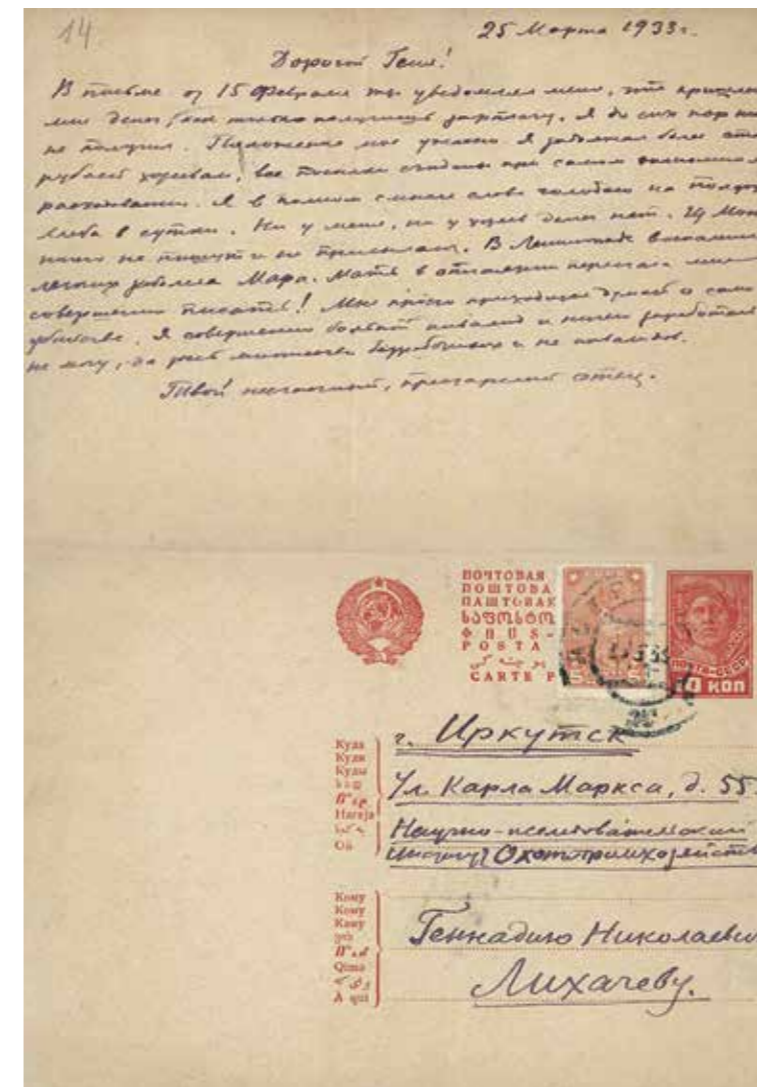 14
25 Марта 1933 г.
Дорогой Геня!
В письме от 15 Февраля ты уведомляел меня, что пришлешь
мне денег, как только получишь зарплату. Я до сих пор ни
не получил. Положение мое ужасно. Я задолжал более ста
рублей хозяевам, все посылки съедены при самом экономном
расходовании. Я в полном смысле слова голодаю на
хлеба в сутки. Ни у меня, ни у денег нет. Из Мон
ничего не пишут и не присылают. В Ленинграде воспалением
легких заболела Мара. Мать в отчаянии перестала мне
совершенно писать! Мне просто приходится думать о само
убийстве. Я совершенно больной инвалид и ничего заработать
не могу, да здесь множество безработных и не инвалидов.
Твой несчастный, престарелый отец.
ПОЧТОВАЯ
ПОШТОВА
ПАШТОВАК
ՓՈՍՏ-
POSTA
CARTE P
5 5
ПОЧТА СССР
10 КОП
Куда
Куди
Куды
Haraja
Où
г. Иркутск
Ул. Карла Маркса, д. 55.
Научно-исследовательский
Институт Охотпромхозяйств
Кому
Кому
Каму
Qima
A qui
Геннадию Николаеви
Лихачеву.